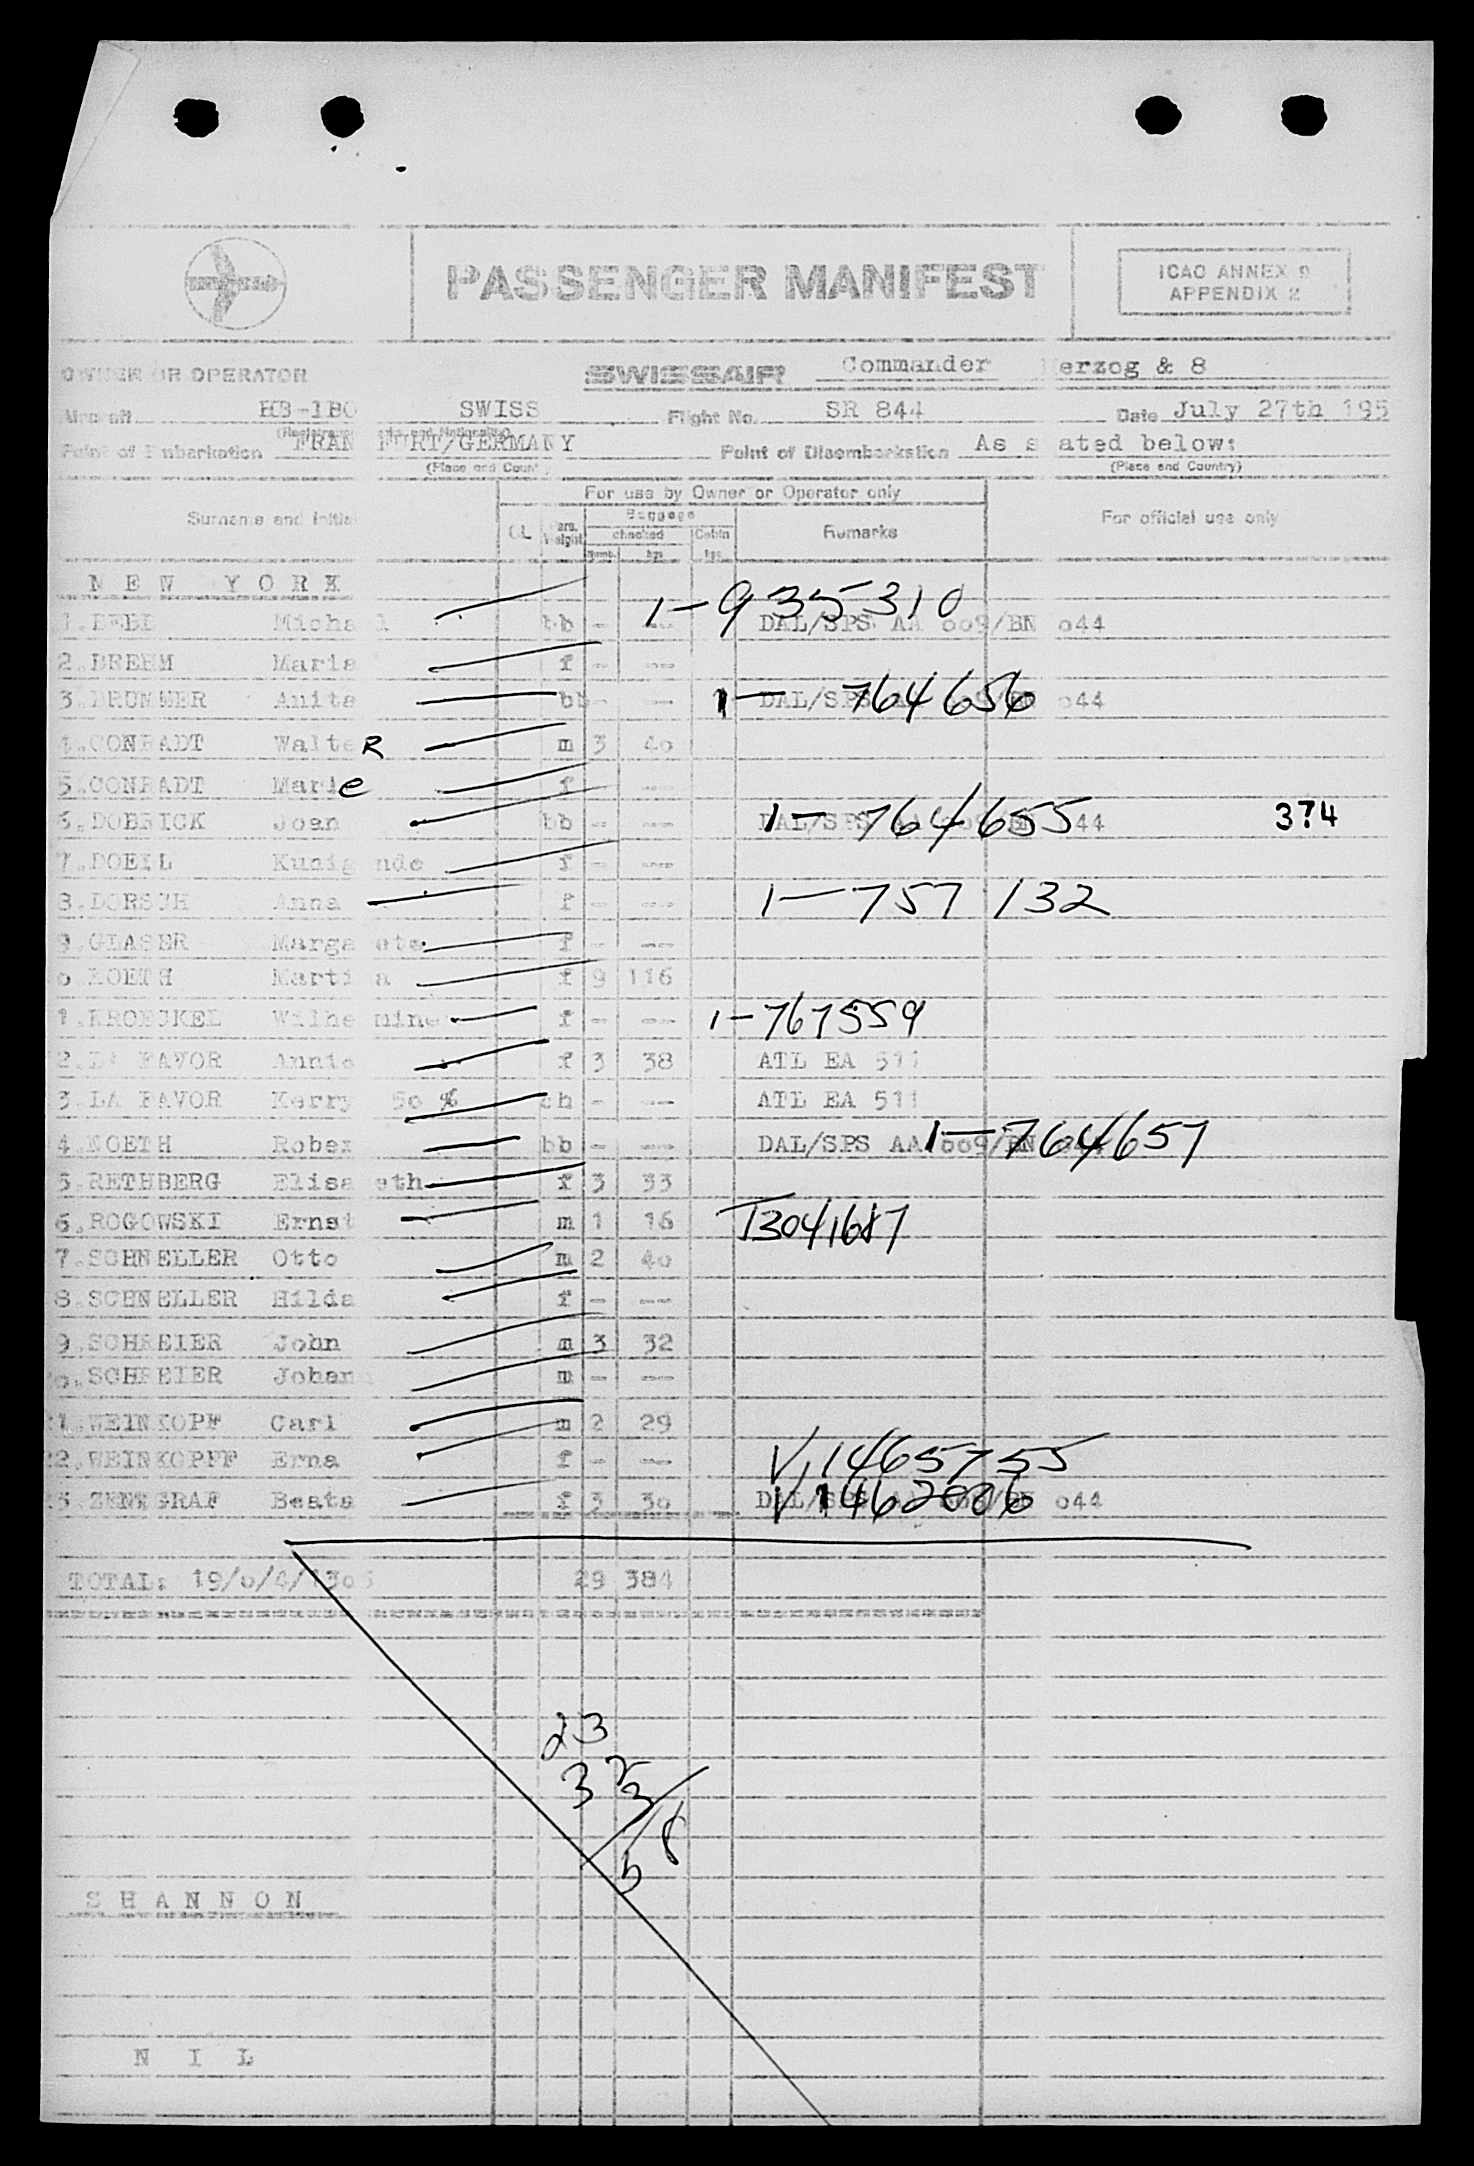 PASSENGER MANIFEST
ICAO ANNEX 9
APPENDIX 2
OWNER OR OPERATOR SWISSAIR Commander erzog & 8
Aircraft HB-IBO SWISS Flight No. SR 844 Date July 27th 195
Point of Embarkation FRAN FURT/GERMANY Point of Disembarkation As s ated below:
(Place and Count (Place and Country)
For use by Owner or Operator only
Surname and Initial CL Pers. Weight Baggage checked Cabin Remarks For official use only
Numb. kgs kgs
N E W Y O R K
1-935310
1. Micha l bb - --- DAL/SPS AA 009/BN 044
2.BREHM Maria f - ---
3.BRUMMER Anita bb - --- 1-764656 DAL/SPS 044
4.CONRADT WalteR m 3 40
5.CONRADT Marie f - ---
6.DOBRICK Joan bb - --- 1-764655 DAL/SPS 44 374
7.DOELL Kunig nde f - ---
8.DORSCH Anna f - --- 1-757 132
9.GLASER Marga ete f - ---
0 Marti a f 9 116
1.KROECKEL Wilhe mine f - --- 1-767559
2.LA FAVOR Annie f 3 38 ATL EA 511
3.LA FAVOR Kerry 50 % ch - --- ATL EA 511
4.NOETH Rober bb - --- DAL/SPS AA 009/BN 1-764657
5.RETHBERG Elisa eth f 3 33
6.ROGOWSKI Ernst m 1 16 T3041687
7.SCHNELLER Otto m 2 40
8.SCHNELLER Hilda f - ---
9.SCHREIER John m 3 32
0.SCHREIER Johan m - ---
21.WEINKOPF Carl m 2 29
22.WEINKOPFF Erna f - --- V,1465755
23.ZENTGRAF Beate f 3 30 DAL/SPS 044 V1462006
TOTAL: 19/0/4/1305 29 384
23
3
S H A N N O N
N I L